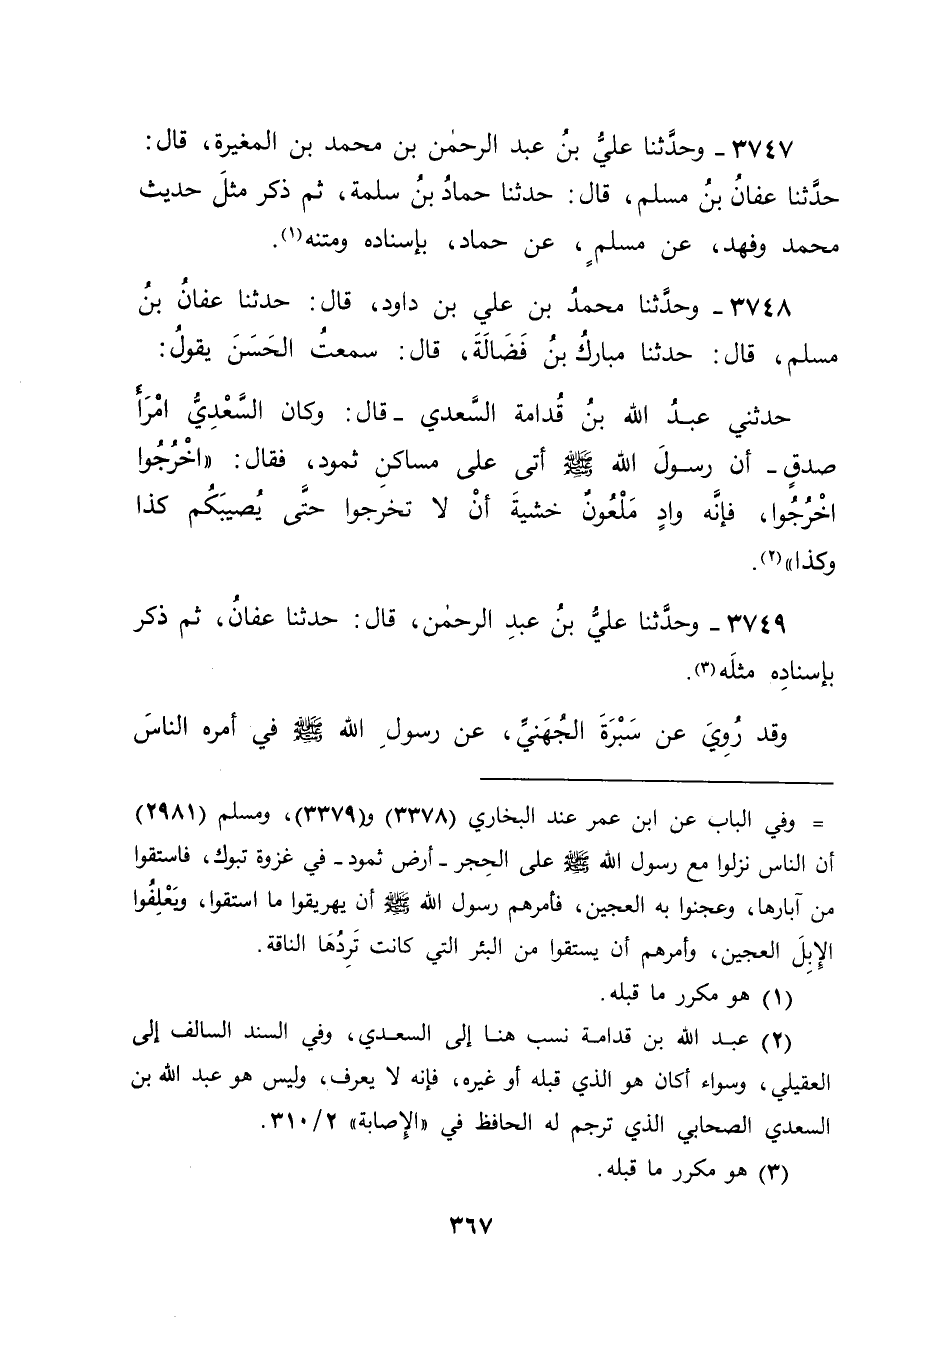 ٣٧٤٧ ـ وحدَّثنا عليُّ بنُ عبد الرحمٰن بن محمد بن المغيرة، قال:
حدَّثنا عفانُ بنُ مسلم، قال: حدثنا حمادُ بنُ سلمة، ثم ذكر مثلَ حديث
محمد وفهد، عن مسلمٍ، عن حماد، بإسناده ومتنه(١).
٣٧٤٨ ـ وحدَّثنا محمدُ بن علي بن داود، قال: حدثنا عفانُ بنُ
مسلم، قال: حدثنا مباركُ بنُ فَضَالَةَ، قال: سمعتُ الحَسَنَ يقولُ:
حدثني عبدُ الله بنُ قُدامة السَّعدي ـ قال: وكان السَّعْدِيُّ امْرَأَ
صدقٍ ـ أن رسولَ الله ﷺ أتى على مساكنِ ثمود، فقال: «اخْرُجُوا
اخْرُجُوا، فإنَّه وادٍ مَلْعُونٌ خشيةَ أنْ لا تخرجوا حتَّى يُصيبَكُم كذا
وكذا»(٢).
٣٧٤٩ ـ وحدَّثنا عليُّ بنُ عبدِ الرحمٰن، قال: حدثنا عفانُ، ثم ذكر
بإسنادِه مثلَه(٣).
وقد رُوِيَ عن سَبْرَةَ الجُهَنيِّ، عن رسولِ الله ﷺ في أمره الناسَ
= وفي الباب عن ابن عمر عند البخاري (٣٣٧٨) و(٣٣٧٩)، ومسلم (٢٩٨١)
أن الناس نزلوا مع رسول الله ﷺ على الحِجر ـ أرض ثمود ـ في غزوة تبوك، فاستقوا
من آبارها، وعجنوا به العجين، فأمرهم رسول الله ﷺ أن يهريقوا ما استقوا، ويَعْلِفُوا
الإِبِلَ العجين، وأمرهم أن يستقوا من البئر التي كانت تَرِدُهَا الناقة.
(١) هو مكرر ما قبله.
(٢) عبد الله بن قدامة نسب هنا إلى السعدي، وفي السند السالف إلى
العقيلي، وسواء أكان هو الذي قبله أو غيره، فإنه لا يعرف، وليس هو عبد الله بن
السعدي الصحابي الذي ترجم له الحافظ في «الإصابة» ٣١٠/٢.
(٣) هو مكرر ما قبله.
٣٦٧